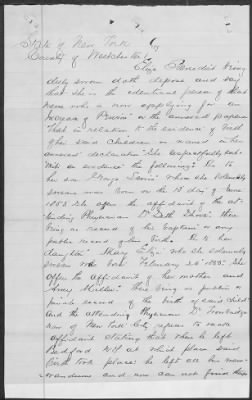 State of New York
County of Westchester
Eliza Benedict being
duly sworn doth depose and say
that she is the identical person of that
name who is now applying for an
increase of Pension on the annexed papers
That in relation to the evidence of birth
of her said children as named in her
annexed declaration she respectfully sub-
mits as evidence the following: As to
her son George Lewis whom she solemnly
swears was born on the 13 day of June
1853 she offers the affidavit of the at-
tending Physician Dr Seth Shove there
being no record of his baptism or any
public record of his birth. As to her
daughter Mary Eliza who she solemnly
swears was born February 26 1855 she
offers the affidavit of her mother and
Amy Miller there being no public or
private record of the birth of said child
and the attending Physician Dr Trowbridge
now of New York City refuses to make
affidavit stating that when he left
Bedford NY at which place said
birth took place he left all his mem-
orandums and now can not find them